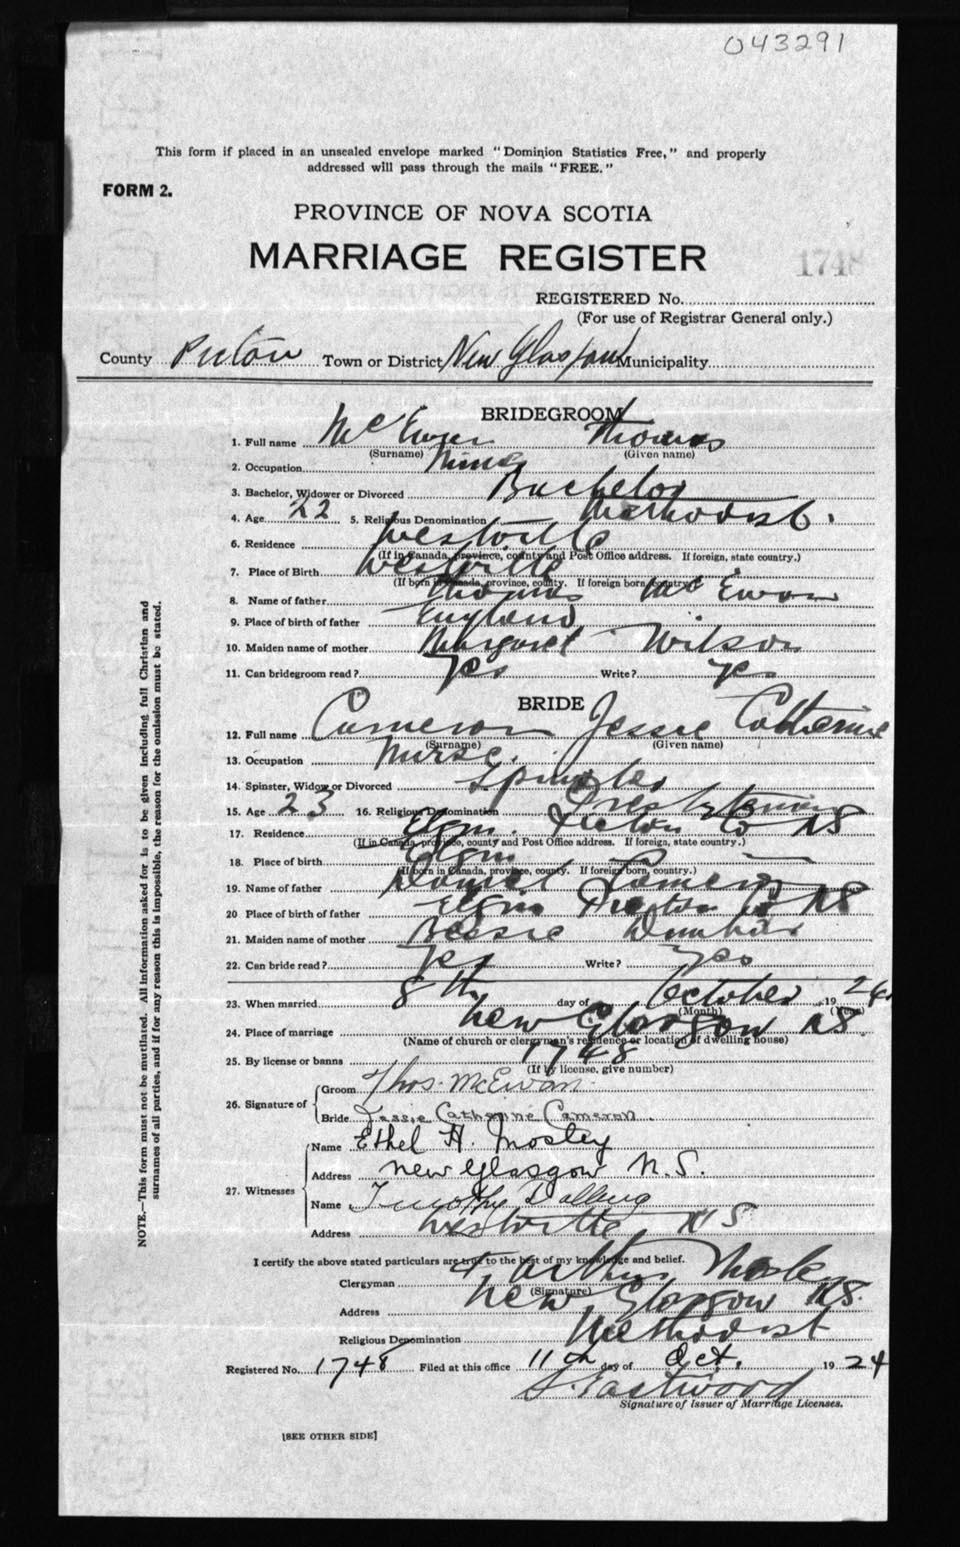 043291
This form if placed in an unsealed envelope marked "Dominion Statistics Free," and properly
addressed will pass through the mails "FREE."
FORM 2.
PROVINCE OF NOVA SCOTIA
MARRIAGE REGISTER
1748
REGISTERED No.
(For use of Registrar General only.)
County Pictou Town or District New Glasgow Municipality
BRIDEGROOM
1. Full name McEwan Thomas
(Surname) (Given name)
2. Occupation Miner
3. Bachelor, Widower or Divorced Bachelor
4. Age 22 5. Religious Denomination Methodist.
6. Residence Westville
(If in Canada, province, county and Post Office address. If foreign, state country.)
7. Place of Birth Westville
(If born in Canada, province, county. If foreign born, country.)
8. Name of father Thomas McEwan
9. Place of birth of father England
10. Maiden name of mother Margaret Wilson
11. Can bridegroom read? Yes Write? Yes
BRIDE
12. Full name Cameron Jessie Catherine
(Surname) (Given name)
13. Occupation Nurse.
14. Spinster, Widow or Divorced Spinster
15. Age 23 16. Religious Denomination Presbyterian
17. Residence Elgin. Pictou Co NS
(If in Canada, province, county and Post Office address. If foreign, state country.)
18. Place of birth Elgin
(If born in Canada, province, county. If foreign born, country.)
19. Name of father Daniel Cameron
20 Place of birth of father Elgin Pictou Co NS
21. Maiden name of mother Bessie Dunbar
22. Can bride read? Yes Write? Yes
23. When married 8th day of October 1924
(Month) (Year)
24. Place of marriage New Glasgow NS.
(Name of church or clergyman's residence or location of dwelling house)
25. By license or banns 1748
(If by license, give number)
26. Signature of Groom Thos. McEwan.
Bride Jessie Catherine Cameron
27. Witnesses Name Ethel H. Mosley
Address New Glasgow N.S.
Name Timothy Dalling
Address Westville NS
I certify the above stated particulars are true to the best of my knowledge and belief.
Clergyman Arthur
(Signature)
Address New Glasgow NS.
Religious Denomination Methodist
Registered No. 1748 Filed at this office 11th day of Oct. 1924
S. Eastwood
Signature of Issuer of Marriage Licenses.
[SEE OTHER SIDE]
NOTE.—This form must not be mutilated. All information asked for is to be given including full Christian and
surnames of all parties, and if for any reason this is impossible, the reason for the omission must be stated.